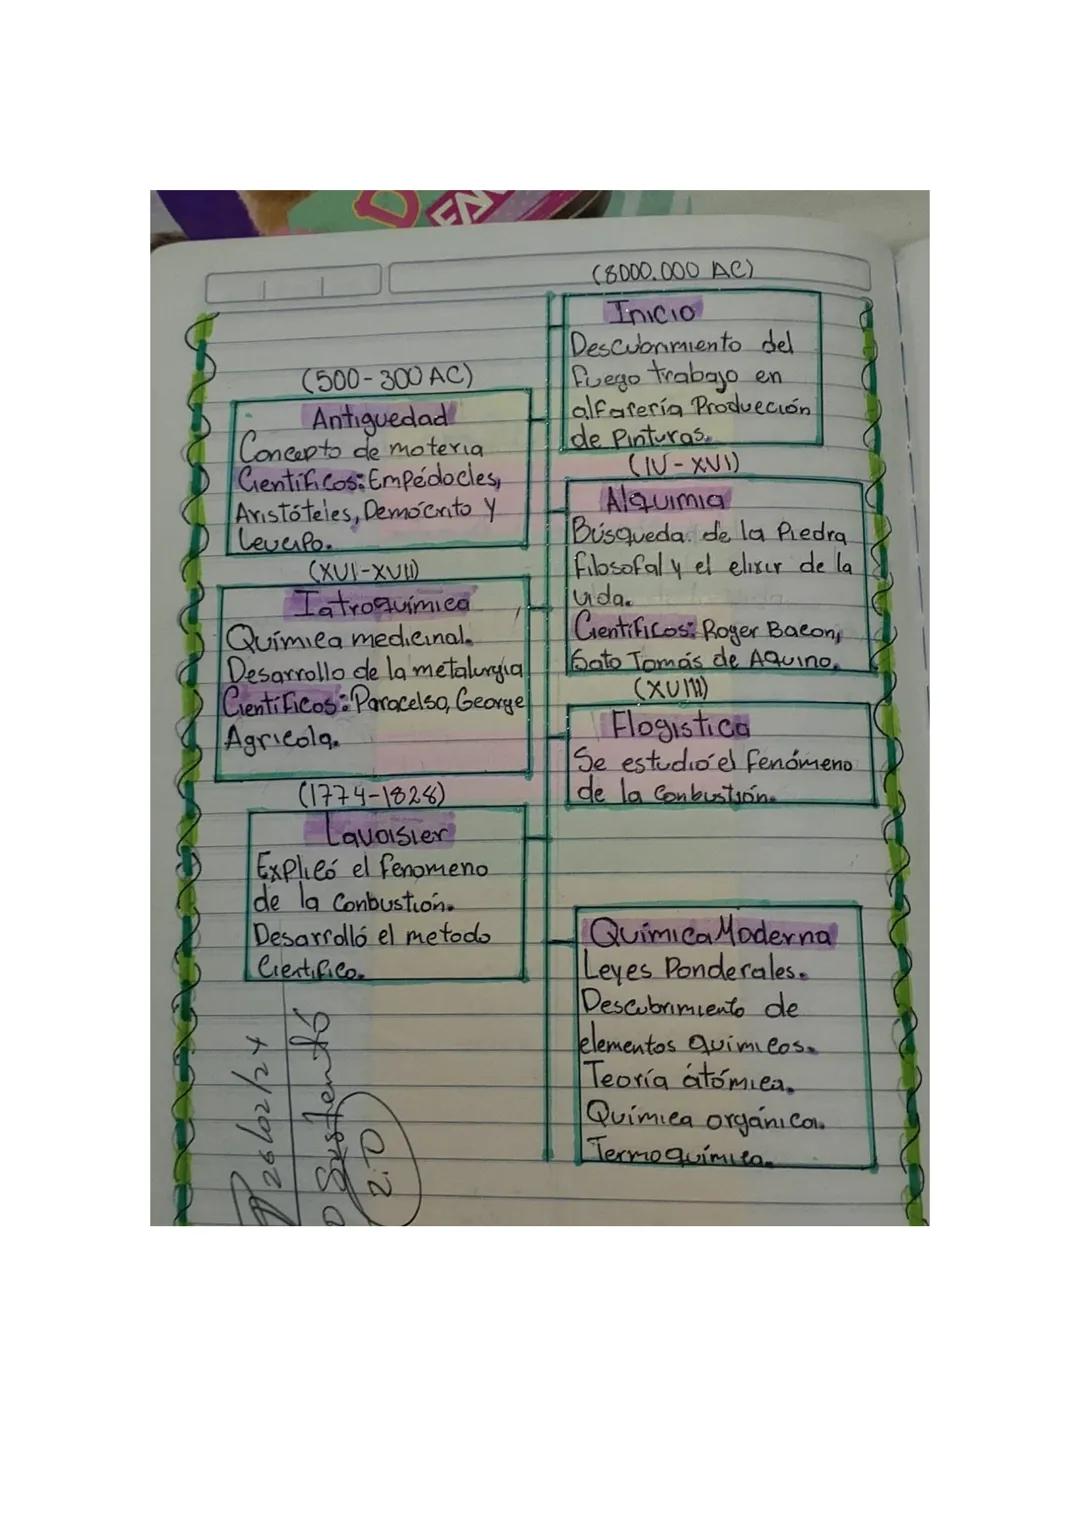 (8000.000 AC)
Inicio
Descubrimiento del
fuego trabajo en
alfarería Producción
de Pinturas.
(500-300 AC)
Antiguedad
Concepto de materia
Científicos: Empédocles,
Aristóteles, Demócrito y
Leucipo.
(IV-XVI)
Alquimia
Búsqueda de la Piedra
filosofal y el elixir de la
vida.
Científicos: Roger Bacon,
Sato Tomás de Aquino.
(XVI-XVII)
Iatroquímica
Química medicinal.
Desarrollo de la metalurgia
Científicos: Paracelso, George
Agricola.
(XVIII)
Flogistica
Se estudió el fenómeno
de la Conbustión.
(1774-1828)
Lavoisier
Explicó el fenomeno
de la Conbustión.
Desarrolló el metodo
Cientifico.
Química Moderna
Leyes Ponderales.
Descubrimiento de
elementos químicos.
Teoría átómica.
Química orgánica.
Termoquímica.
26/02/24
Sustentó
2.0